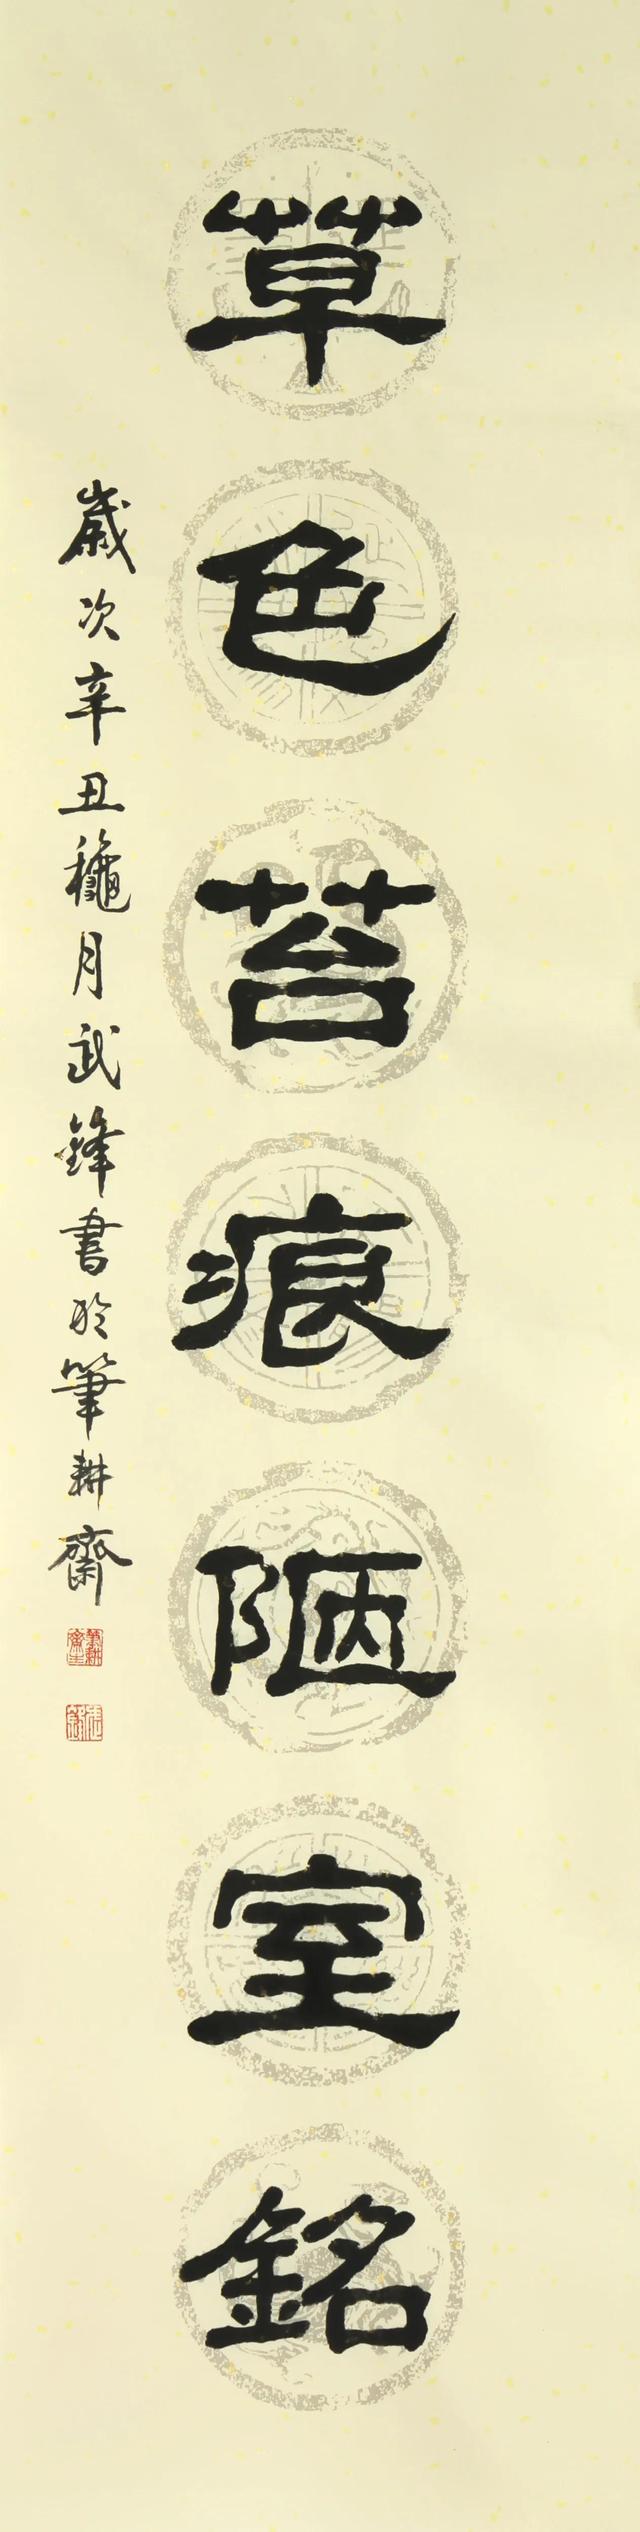 草色苔痕陋室銘
歲次辛丑龝月武鋒書於筆耕齋